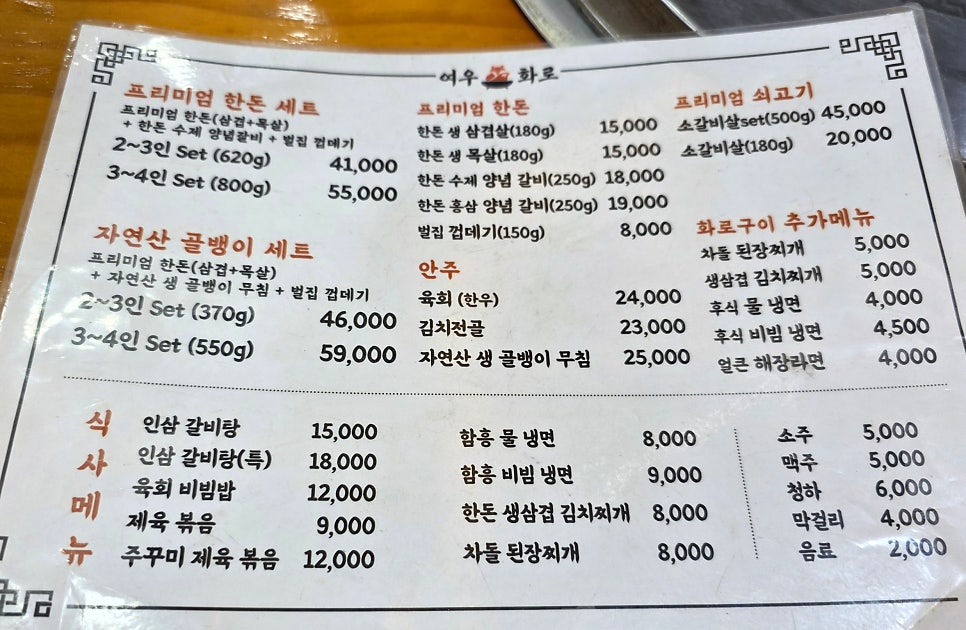 여우 화로
프리미엄 한돈 세트
프리미엄 한돈(삼겹+목살)
+ 한돈 수제 양념갈비 + 벌집 껍데기
2~3인 Set (620g) 41,000
3~4인 Set (800g) 55,000
자연산 골뱅이 세트
프리미엄 한돈(삼겹+목살)
+ 자연산 생 골뱅이 무침 + 벌집 껍데기
2~3인 Set (370g) 46,000
3~4인 Set (550g) 59,000
프리미엄 한돈
한돈 생 삼겹살(180g) 15,000
한돈 생 목살(180g) 15,000
한돈 수제 양념 갈비(250g) 18,000
한돈 홍삼 양념 갈비(250g) 19,000
벌집 껍데기(150g) 8,000
안주
육회 (한우) 24,000
김치전골 23,000
자연산 생 골뱅이 무침 25,000
프리미엄 쇠고기
소갈비살set(500g) 45,000
소갈비살(180g) 20,000
화로구이 추가메뉴
차돌 된장찌개 5,000
생삼겹 김치찌개 5,000
후식 물 냉면 4,000
후식 비빔 냉면 4,500
얼큰 해장라면 4,000
식사메뉴
인삼 갈비탕 15,000
인삼 갈비탕(특) 18,000
육회 비빔밥 12,000
제육 볶음 9,000
주꾸미 제육 볶음 12,000
함흥 물 냉면 8,000
함흥 비빔 냉면 9,000
한돈 생삼겹 김치찌개 8,000
차돌 된장찌개 8,000
소주 5,000
맥주 5,000
청하 6,000
막걸리 4,000
음료 2,000